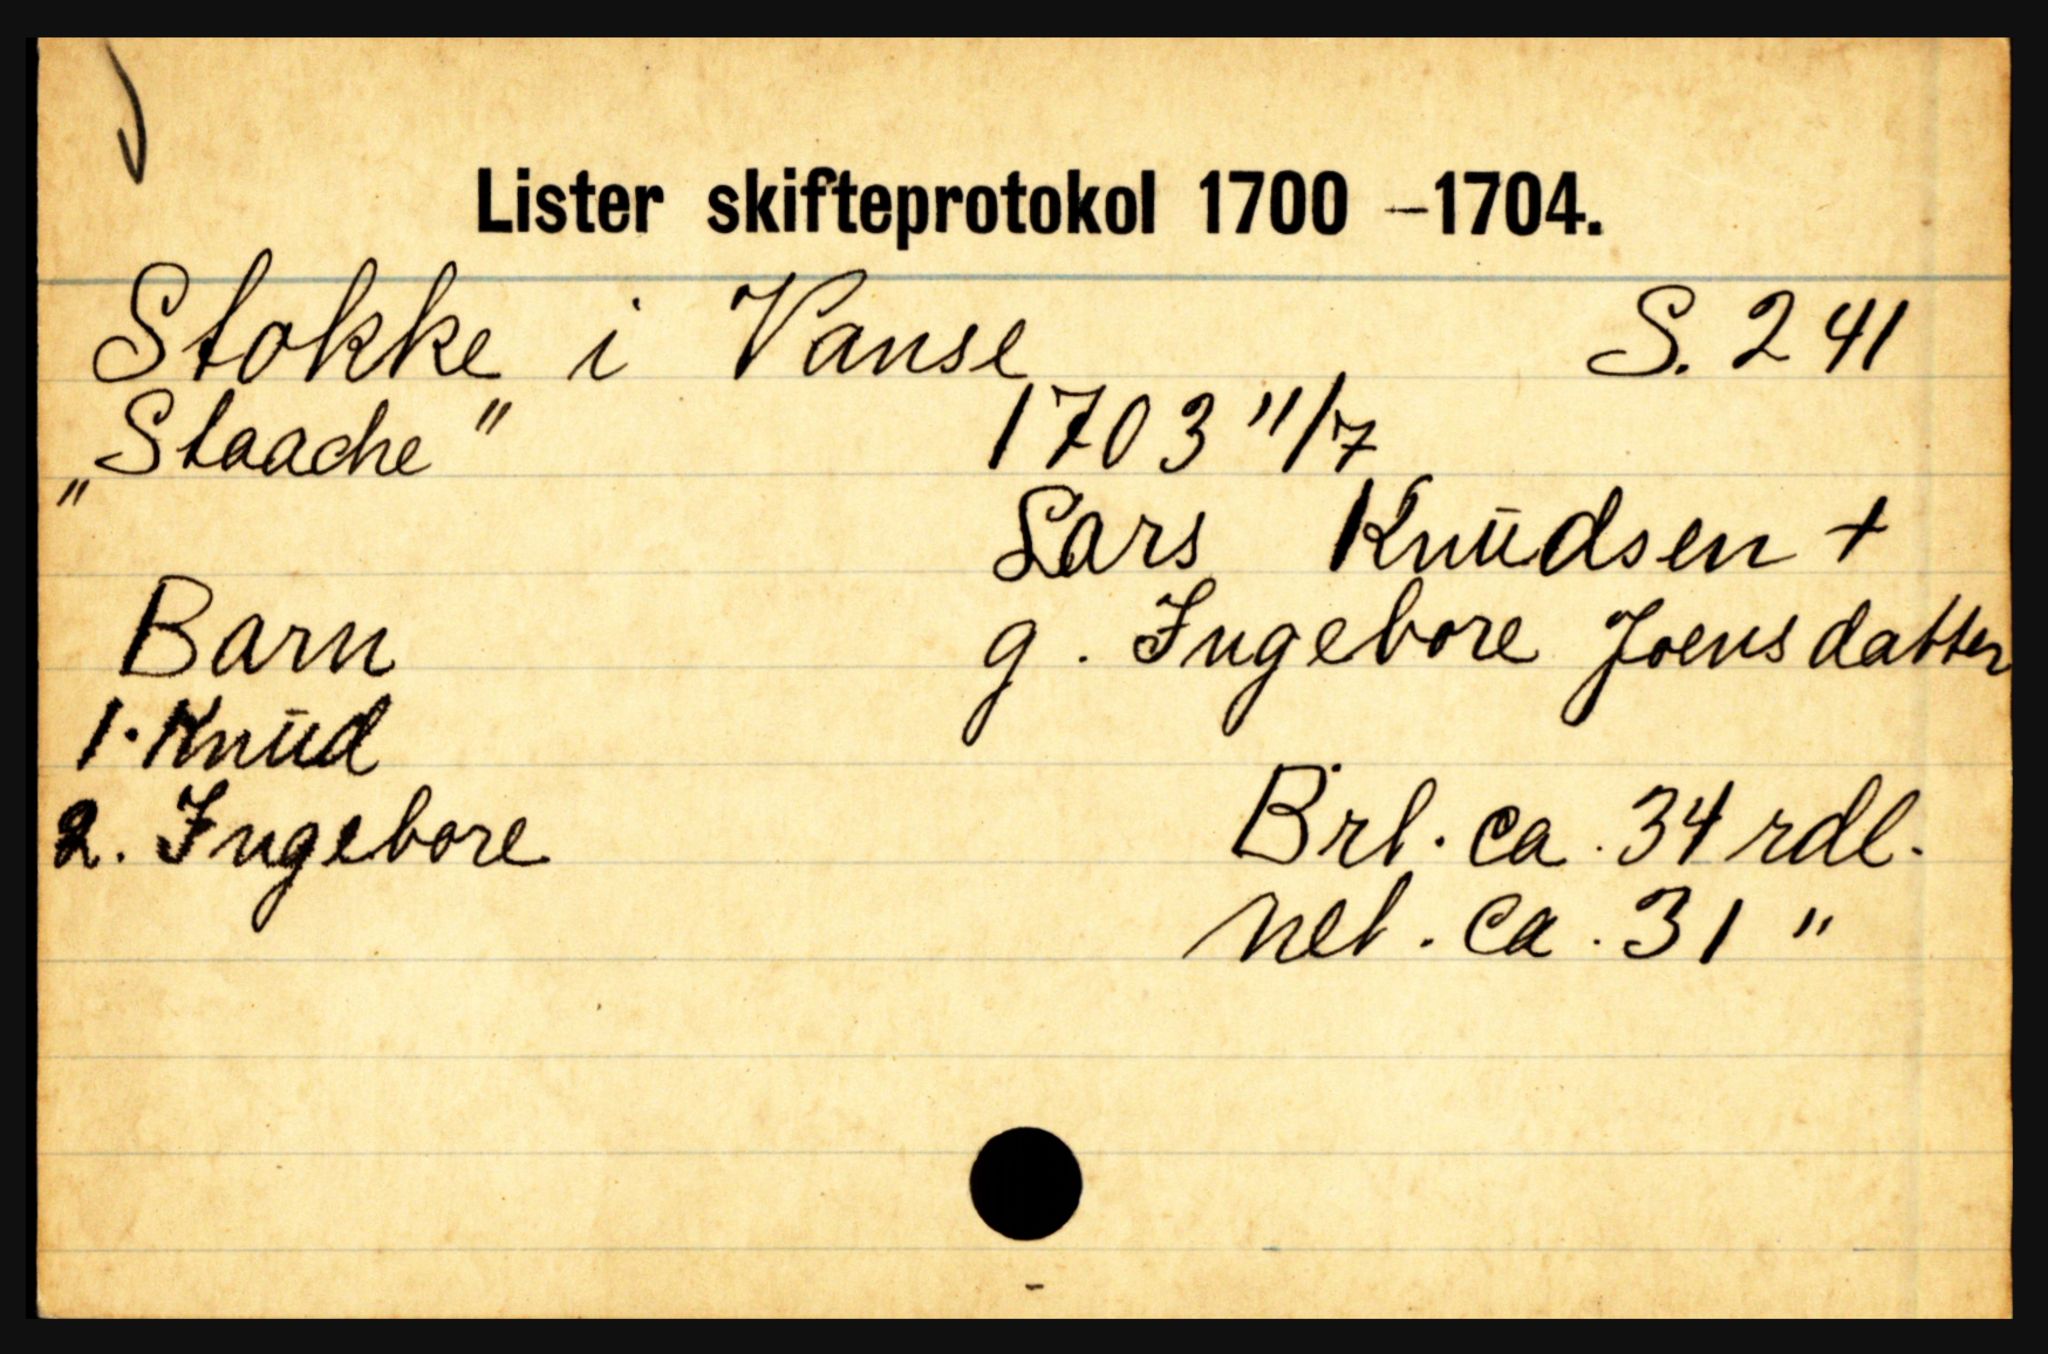 Lister skifteprotokol 1700 -1704.
Stokke i Vanse S. 241
„Staache" 1703 11/7
Lars Knudsen +
Barn g. Ingebore Joensdatter
1. Knud
2. Ingebore Brt. ca. 34 rdl.
net. ca. 31 "